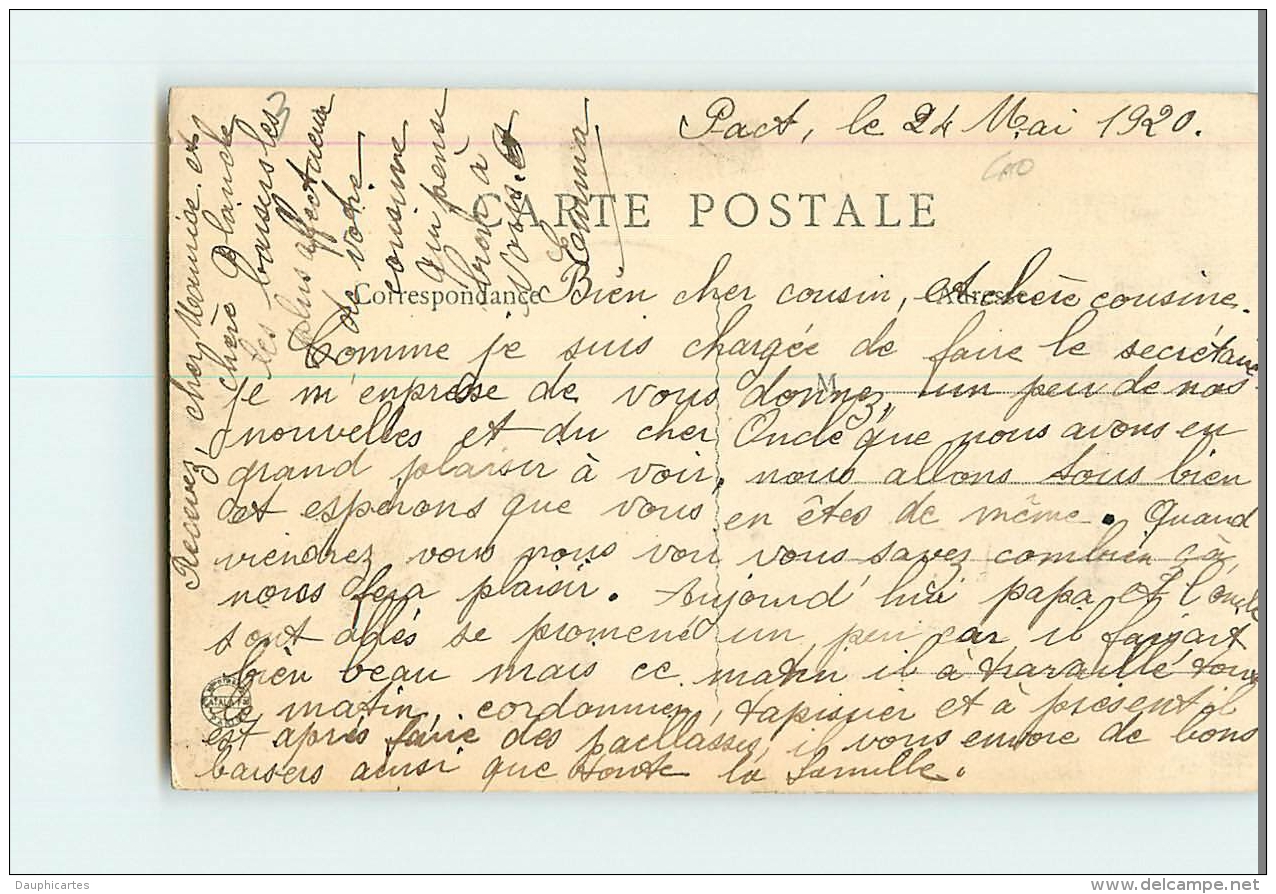 Pact, le 24 Mai 1920.
CARTE POSTALE
Correspondance
Adresse
M
Bien cher cousin, et chère cousine.
Comme je suis chargée de faire le secrétaire
je m'enprèsse de vous donnez, un peu de nos
nouvelles et du cher Oncle que nous avons eu
grand plaisir à voir, nous allons tous bien
et esperons que vous en êtes de même. Quand
viendrez vous nous voir vous savez combien çà
nous fera plaisir. Aujourd'hui papa et l'oncle
sont allés se promené un peu car il faisait
bien beau mais ce matin il à travaillé tout
le matin, cordonnier, tapissier et à présent il
est après faire des paillasses, il vous envoie de bons
baisers ainsi que toute la famille.
Recevez, cher Maurice et
chère Blanche
les baisers les
plus affectueux
de votre
cousine
qui pense
bien à
vous.
Emma
CATALA
Dauphicartes
www.delcampe.net